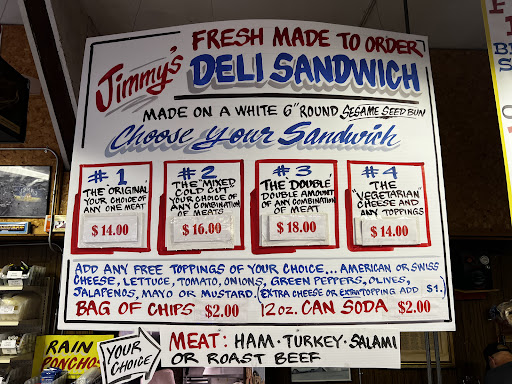 Jimmy's
FRESH MADE TO ORDER
DELI SANDWICH
MADE ON A WHITE 6" ROUND SESAME SEED BUN
Choose your Sandwich
#1
THE "ORIGINAL"
YOUR CHOICE OF
ANY ONE MEAT
$14.00
#2
THE "MIXED"
COLD CUT
YOUR CHOICE OF
ANY COMBINATION
OF MEATS
$16.00
#3
THE "DOUBLE"
DOUBLE AMOUNT
OF ANY COMBINATION
OF MEAT
$18.00
#4
THE
"VEGETARIAN"
CHEESE AND
ANY TOPPINGS
$14.00
ADD ANY FREE TOPPINGS OF YOUR CHOICE... AMERICAN OR SWISS
CHEESE, LETTUCE, TOMATO, ONIONS, GREEN PEPPERS, OLIVES,
JALAPENOS, MAYO OR MUSTARD. (EXTRA CHEESE OR EXTRA TOPPING ADD $1.)
BAG OF CHIPS $2.00 12 oz. CAN SODA $2.00
YOUR
CHOICE
MEAT: HAM · TURKEY · SALAMI
OR ROAST BEEF
RAIN
PONCHOS